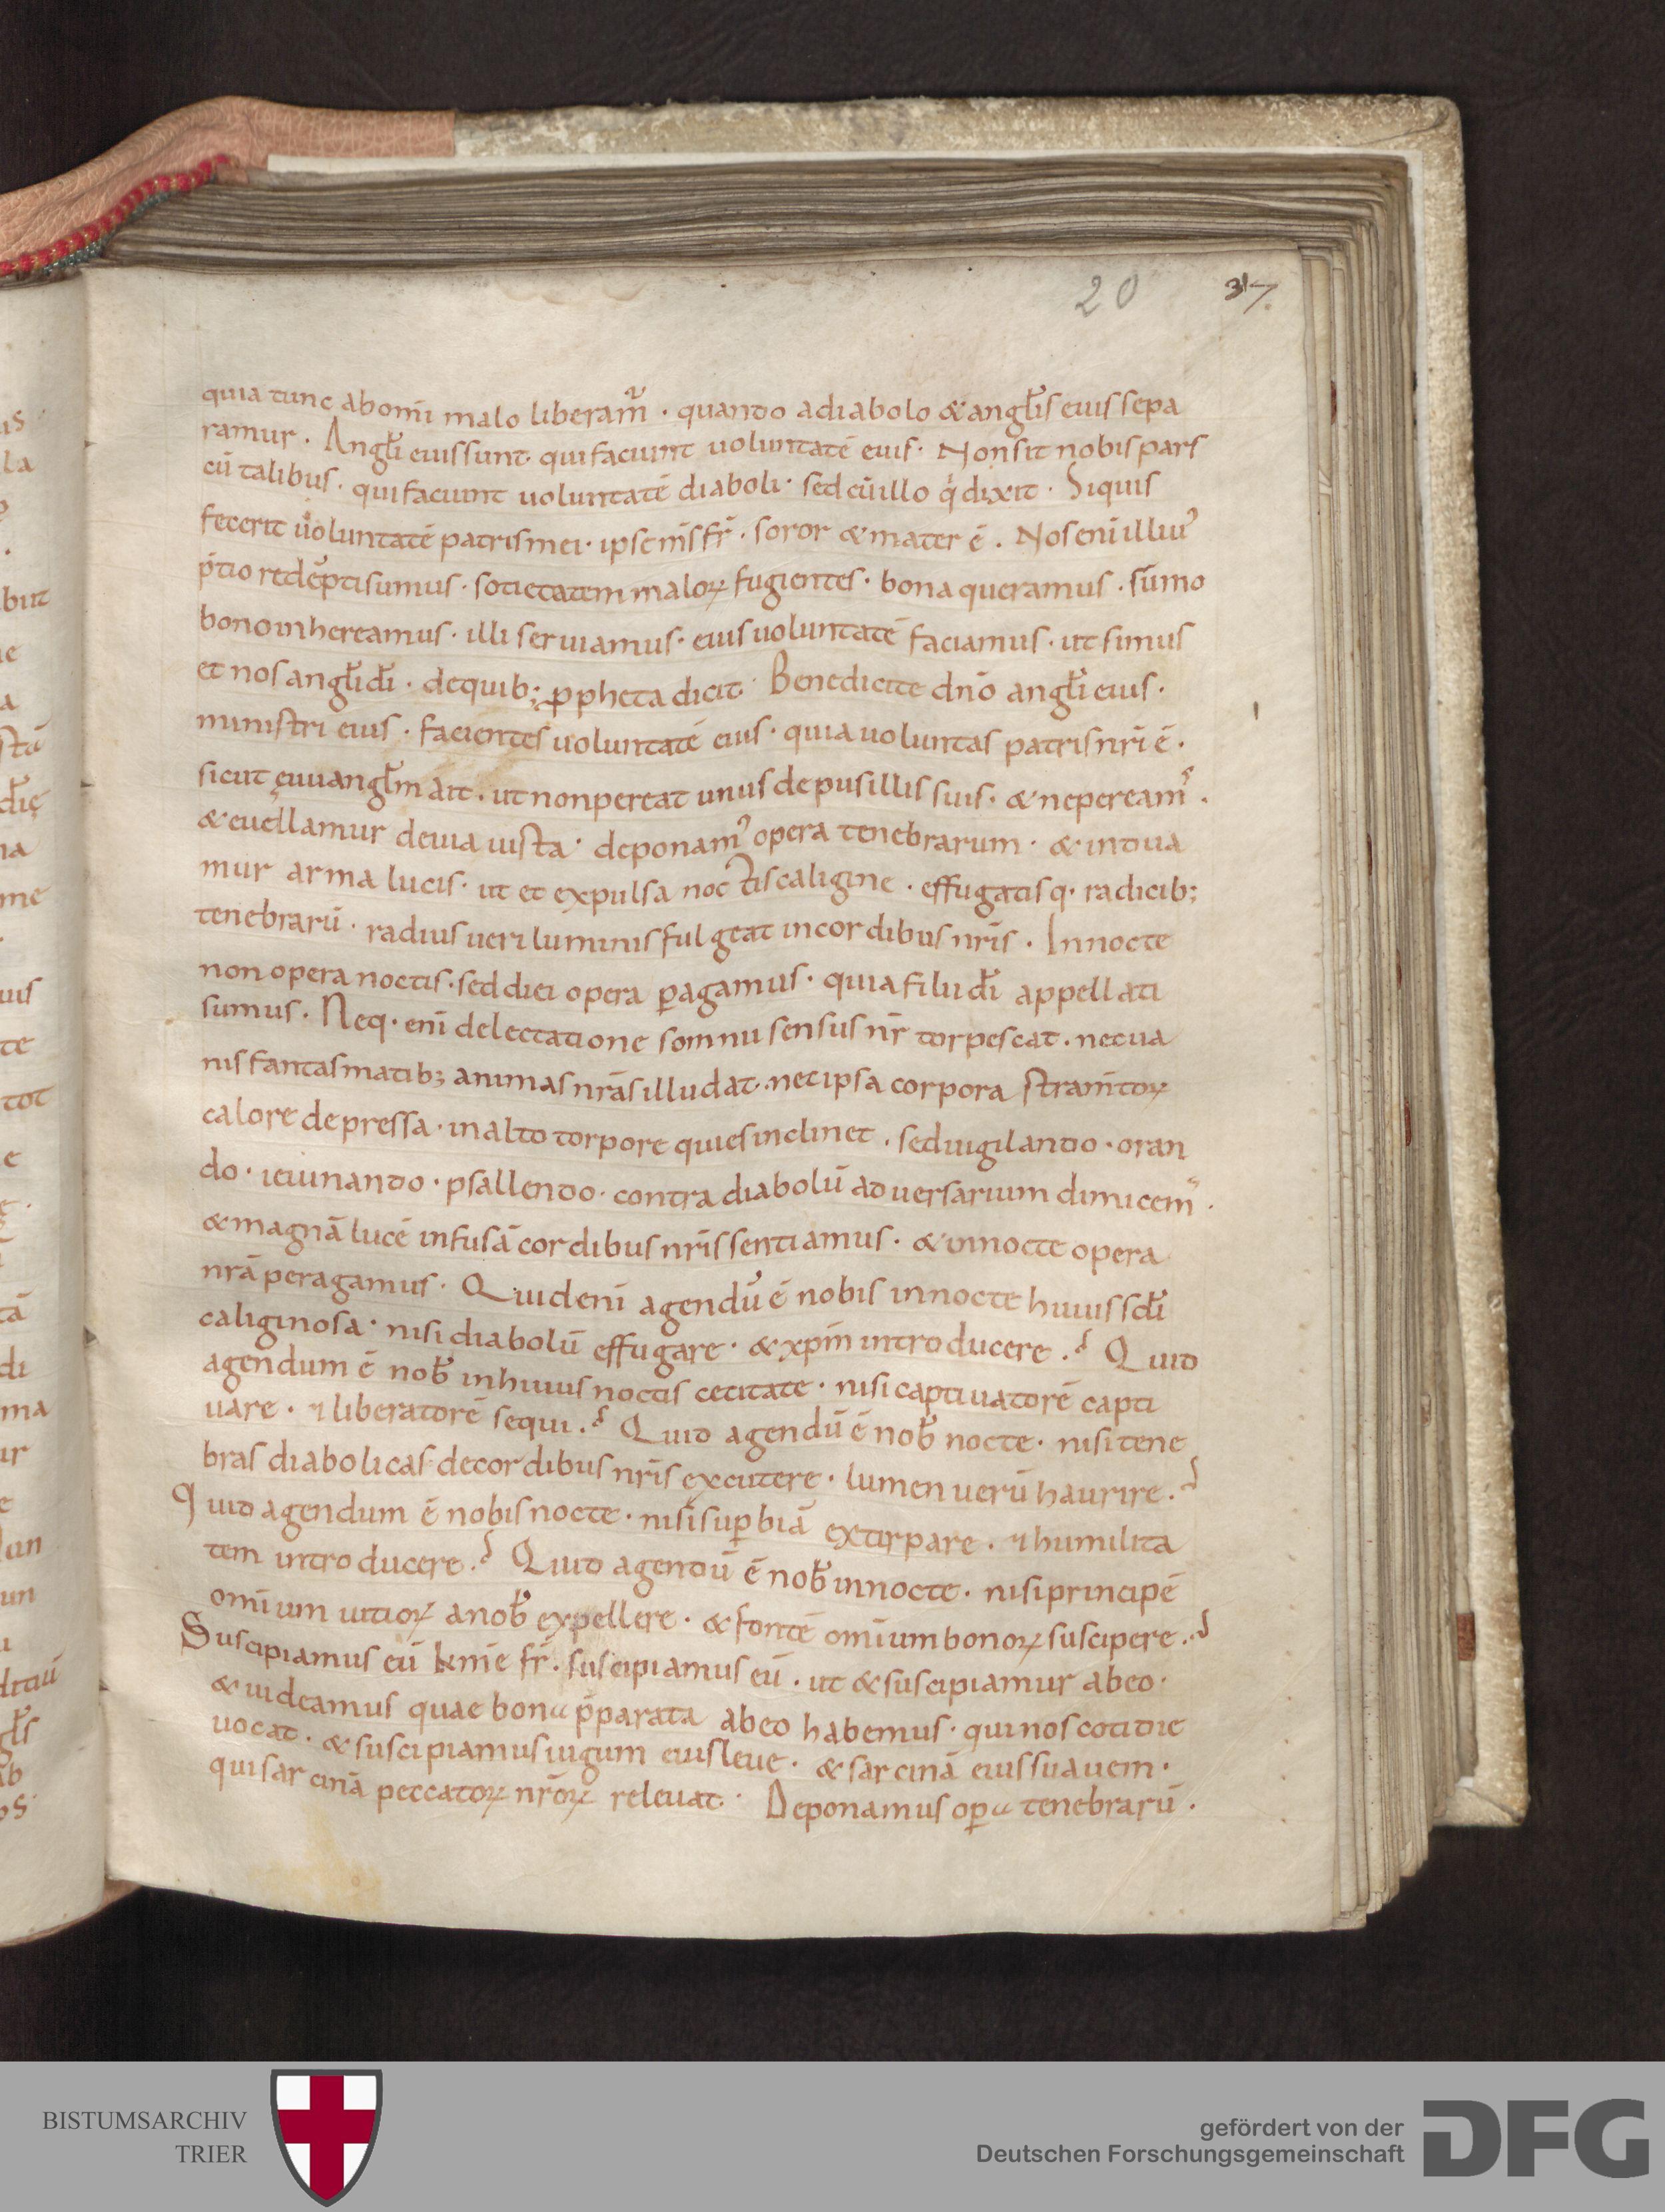 20 37.
quia tunc abom̄i malo liberam̄ · quando adiabolo & angłis eius sepa
ramur . Angłi eius sunt qui faciunt uoluntatē eius · Non sit nobis pars
cū talibus · qui faciunt uoluntatē diaboli · sed cū illo q̇ dixit · Siquis
fecerit uoluntatē patris mei · ipse m̄s fr̄ · soror & mater ē . Nos enī illiuˀ
p̄tio redēpti sumus · sotietatem maloꝝ fugientes · bona queramus · sūmo
bono inhereamus · illi seruiamus · eius uoluntatē faciamus · ut simus
et nos angłi dī · de quib; ꝓpheta dicit · Benedicite dn̄o angłi eius ·
ministri eius · facientes uoluntatē eius · quia uoluntas patris nr̄i ē ·
sicut ęuuangłm ait · ut non pereat unus de pusillis suis · & ne peream̄ˀ .
& euellamur de uia iusta · deponamˀ opera tenebrarum · & indua
mur arma lucis · ut et expulsa noctis caligine · effugatisq · radicib;
tenebrarū · radius ueri luminis fulgeat in cordibus nr̄is . In nocte
non opera noctis · sed diei opera ꝑagamus · quia filii dī appellati
sumus . Neq · enī delectatione somnii sensus nr̄ torpescat . nec ua
nis fantasmatib; animas nr̄as illudat · nec ipsa corpora stram̄toꝝ
calore depressa · in alto torpore quies inclinet . sed uigilando · oran
do · ieiunando · psallendo · contra diabolū aduersarium dimicemˀ ·
& magnā lucē infusā cordibus nr̄is sentiamus · & in nocte opera
nr̄a peragamus · Quid enī agendū ē nobis in nocte huius scłi
caliginosa · nisi diabolū effugare · & xp̄m introducere .? Quid
agendum ē nob̄ in huius noctis cecitate · nisi captiuatorē capti
uare · ⁊ liberatorē sequi .? Quid agendū ē nob̄ nocte · nisi tene
bras diabolicas de cordibus nr̄is excutere · lumen uerū haurire .?
Quid agendum ē nobis nocte · nisi suꝑbiā extirpare . ⁊ humilita
tem introducere .? Quid agendū ē nob̄ in nocte · nisi principē
om̄ium uitioꝝ a nob̄ expellere · & fontē om̄ium bonoꝝ suscipere .?
Suscipiamus eū km̄e fr̄ . suscipiamus eū . ut & suscipiamur ab eo ·
& uideamus quae bona p̄parata ab eo habemus · qui nos cotidie
uocat · & suscipiamus iugum eius leue · & sarcinā eius suauem ·
qui sarcinā peccatoꝝ nr̄oꝝ releuat · Deponamus oꝑa tenebrarū .
BISTUMSARCHIV
TRIER
gefördert von der
Deutschen Forschungsgemeinschaft
DFG